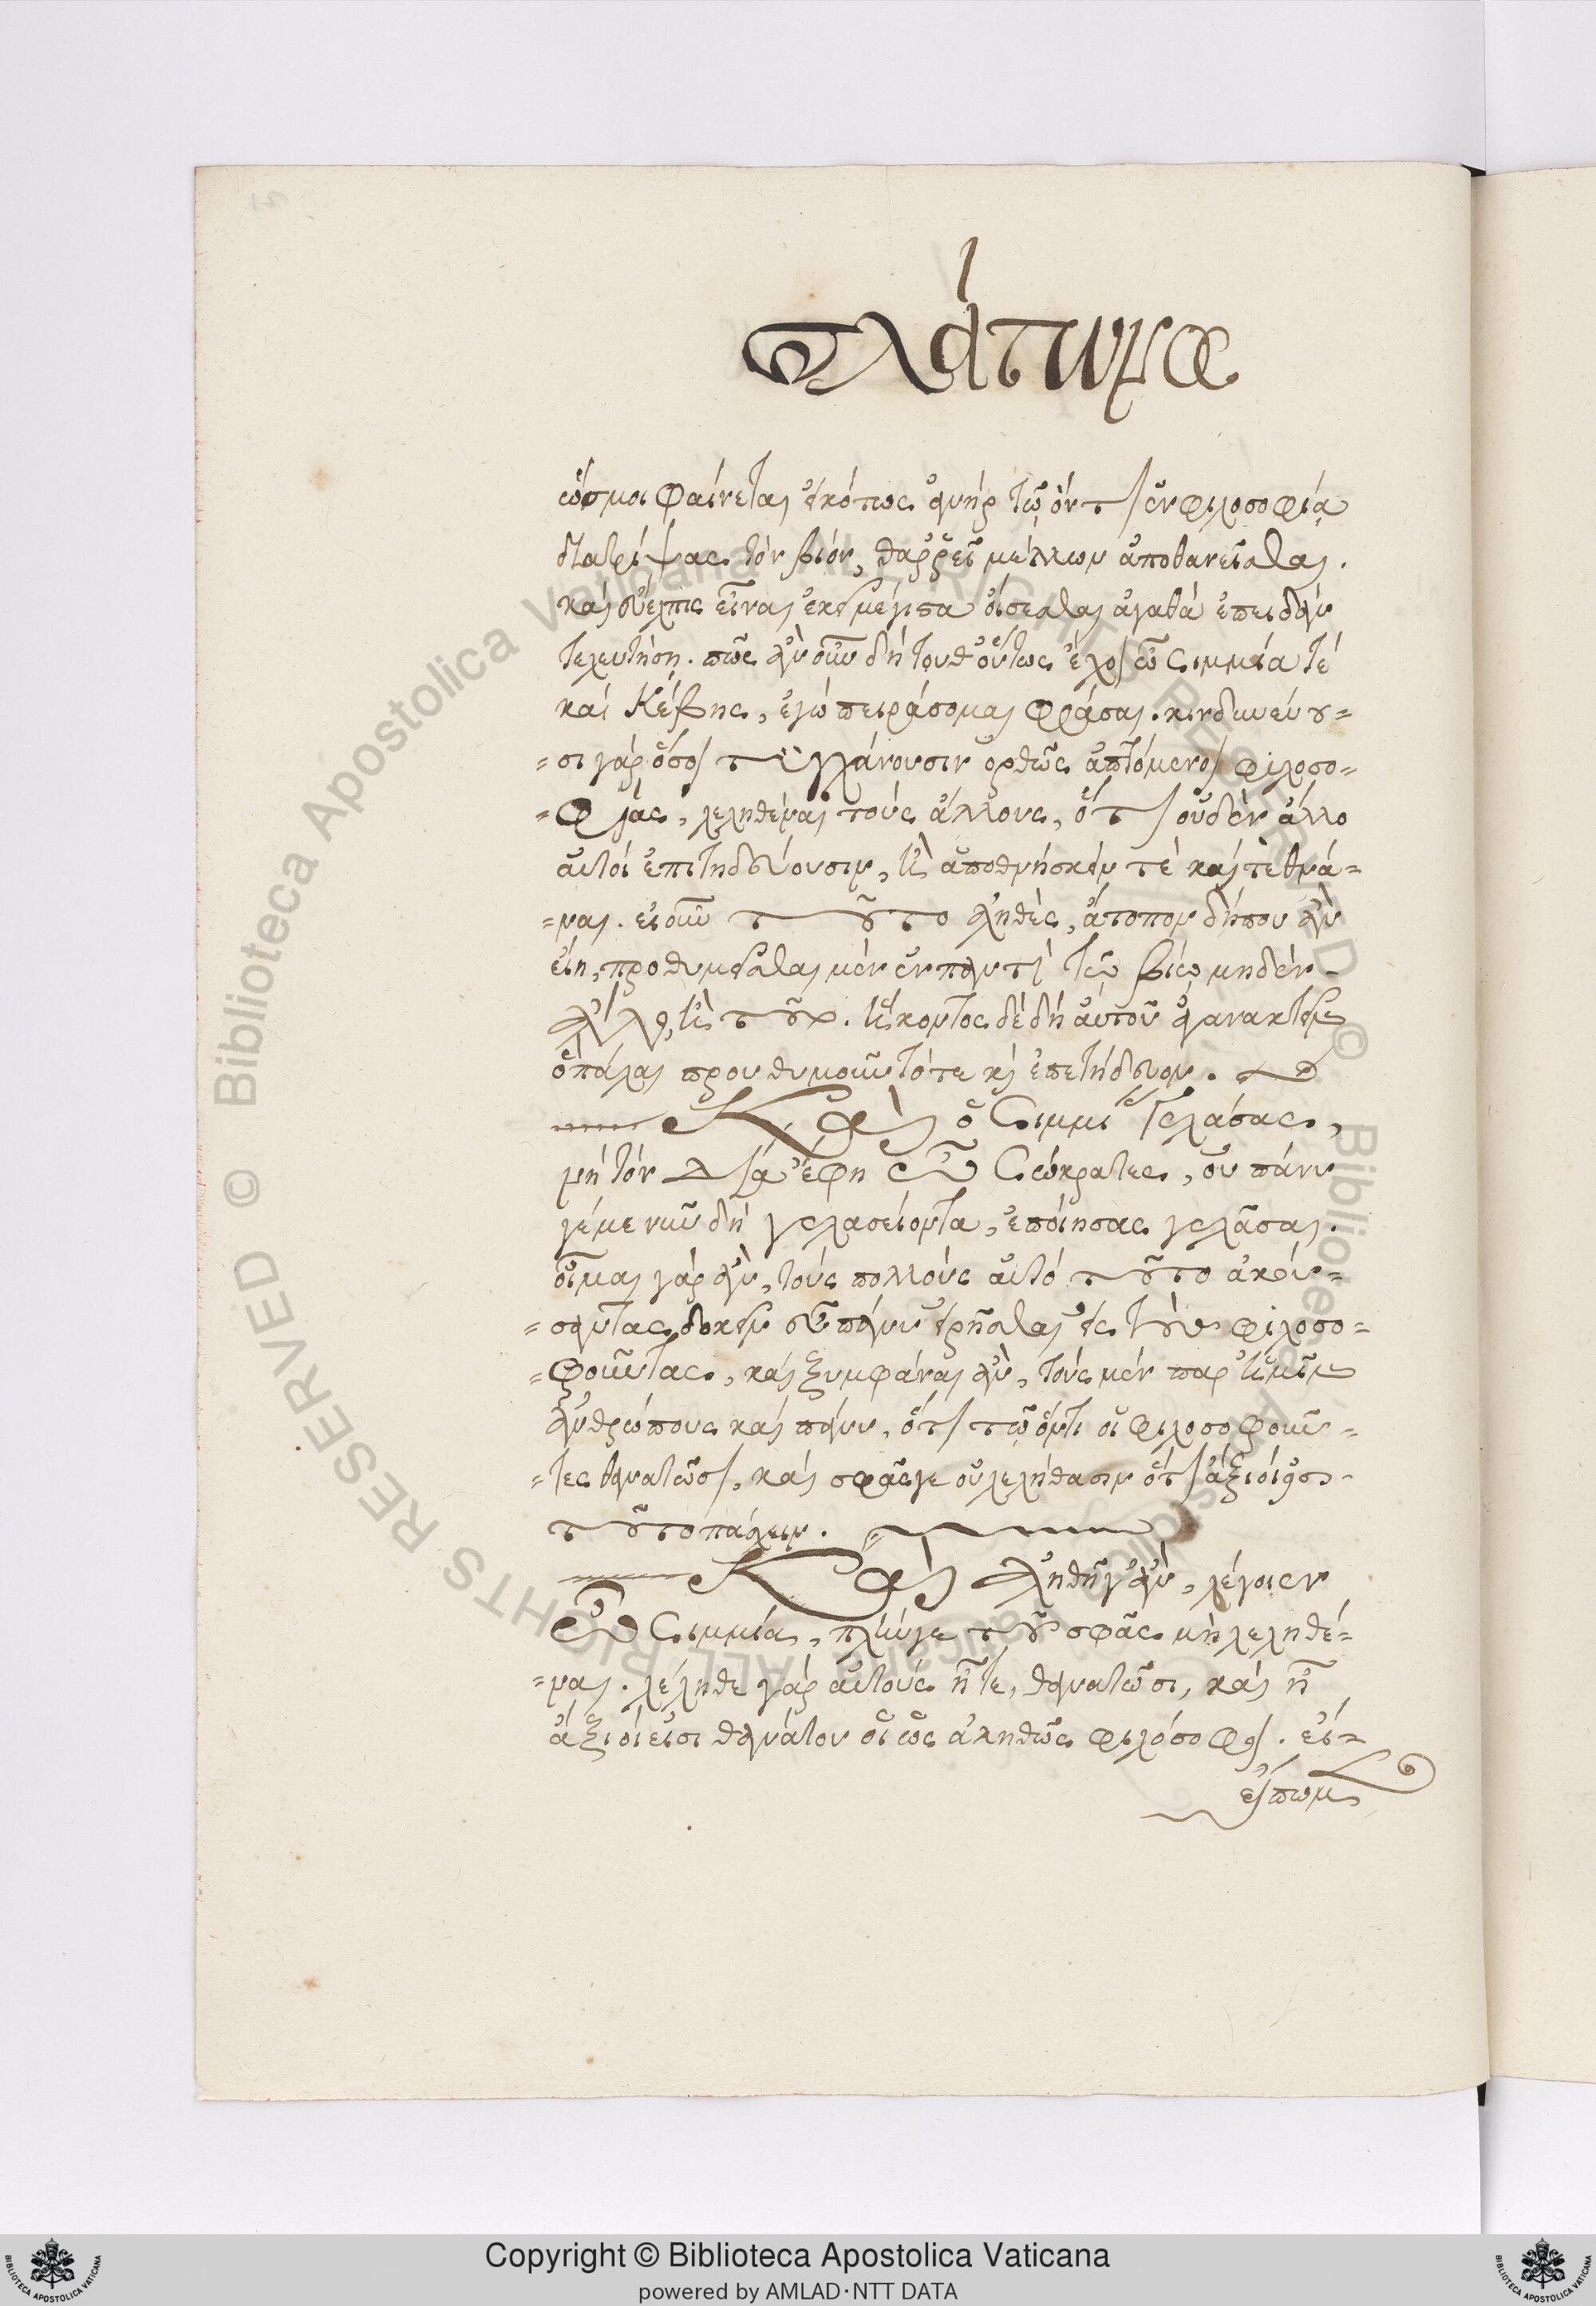 πλάτωνος
ὥς μοι φαίνεται εἰκότως ἀνὴρ τῷ ὄντι ἐν φιλοσοφίᾳ
διατρίψας τὸν βίον, θαρρεῖ μέλλων ἀποθανεῖσθαι.
καὶ εὔελπις εἶναι ἐκεῖ μέγιστα οἴσεσθαι ἀγαθὰ ἐπειδὰν
τελευτήσῃ. πῶς ἂν οὖν δὴ τοῦθ οὕτως ἔχοι ὦ Σιμμία τέ
καὶ Κέβης, ἐγὼ πειράσομαι φράσαι. κινδυνεύου=
=σι γὰρ ὅσοι τυγχάνουσιν ὀρθῶς ἁπτόμενοι φιλοσο=
=φίας, λεληθέναι τοὺς ἄλλους, ὅτι οὐδὲν ἄλλο
αὐτοὶ ἐπιτηδεύουσιν, ἢ ἀποθνήσκειν τέ καὶ τεθνά=
=ναι. εἰ οὖν τοῦτο ἀληθὲς, ἄτοπον δήπου ἂν
εἴη, προθυμεῖσθαι μὲν ἐν παντὶ τῷ βίῳ μηδὲν
ἄλλο, ἢ τοῦτο. ἥκοντος δὲ δὴ αὐτοῦ ἀγανακτεῖν
ὃ πάλαι προυθυμοῦντό τε καὶ ἐπετήδευον.
Καὶ ὁ Σιμμίας γελάσας,
νὴ τὸν Δία ἔφη ὦ Σώκρατες, οὐ πάνυ
γέ με νῦν δὴ γελασείοντα, ἐποίησας γελᾶσαι.
οἶμαι γὰρ ἂν, τοὺς πολλοὺς αὐτὸ τοῦτο ἀκού=
=σαντας δοκεῖν εὖ πάνυ εἰρῆσθαι εἰς τοὺς φιλοσο=
=φοῦντας, καὶ ξυμφάναι ἂν, τοὺς μὲν παρ ἡμῖν
ἀνθρώπους καὶ πάνυ, ὅτι τῷ ὄντι οἱ φιλοσοφοῦν=
=τες θανατῶσι, καὶ σφᾶς γε οὐ λελήθασιν ὅτι ἄξιοί εἰσι
τοῦτο πάσχειν.
Καὶ ἀληθῆ γ ἂν, λέγοιεν
ὦ Σιμμία, πλήν γε τοῦ σφᾶς μὴ λεληθέ=
=ναι. λέληθε γὰρ αὐτοὺς ᾗ τε, θανατῶσι, καὶ ᾗ
ἄξιοί εἰσι θανάτου οἱ ὡς ἀληθῶς φιλόσοφοι. εἴ=
εἴπωμεν
Copyright © Biblioteca Apostolica Vaticana
powered by AMLAD・NTT DATA